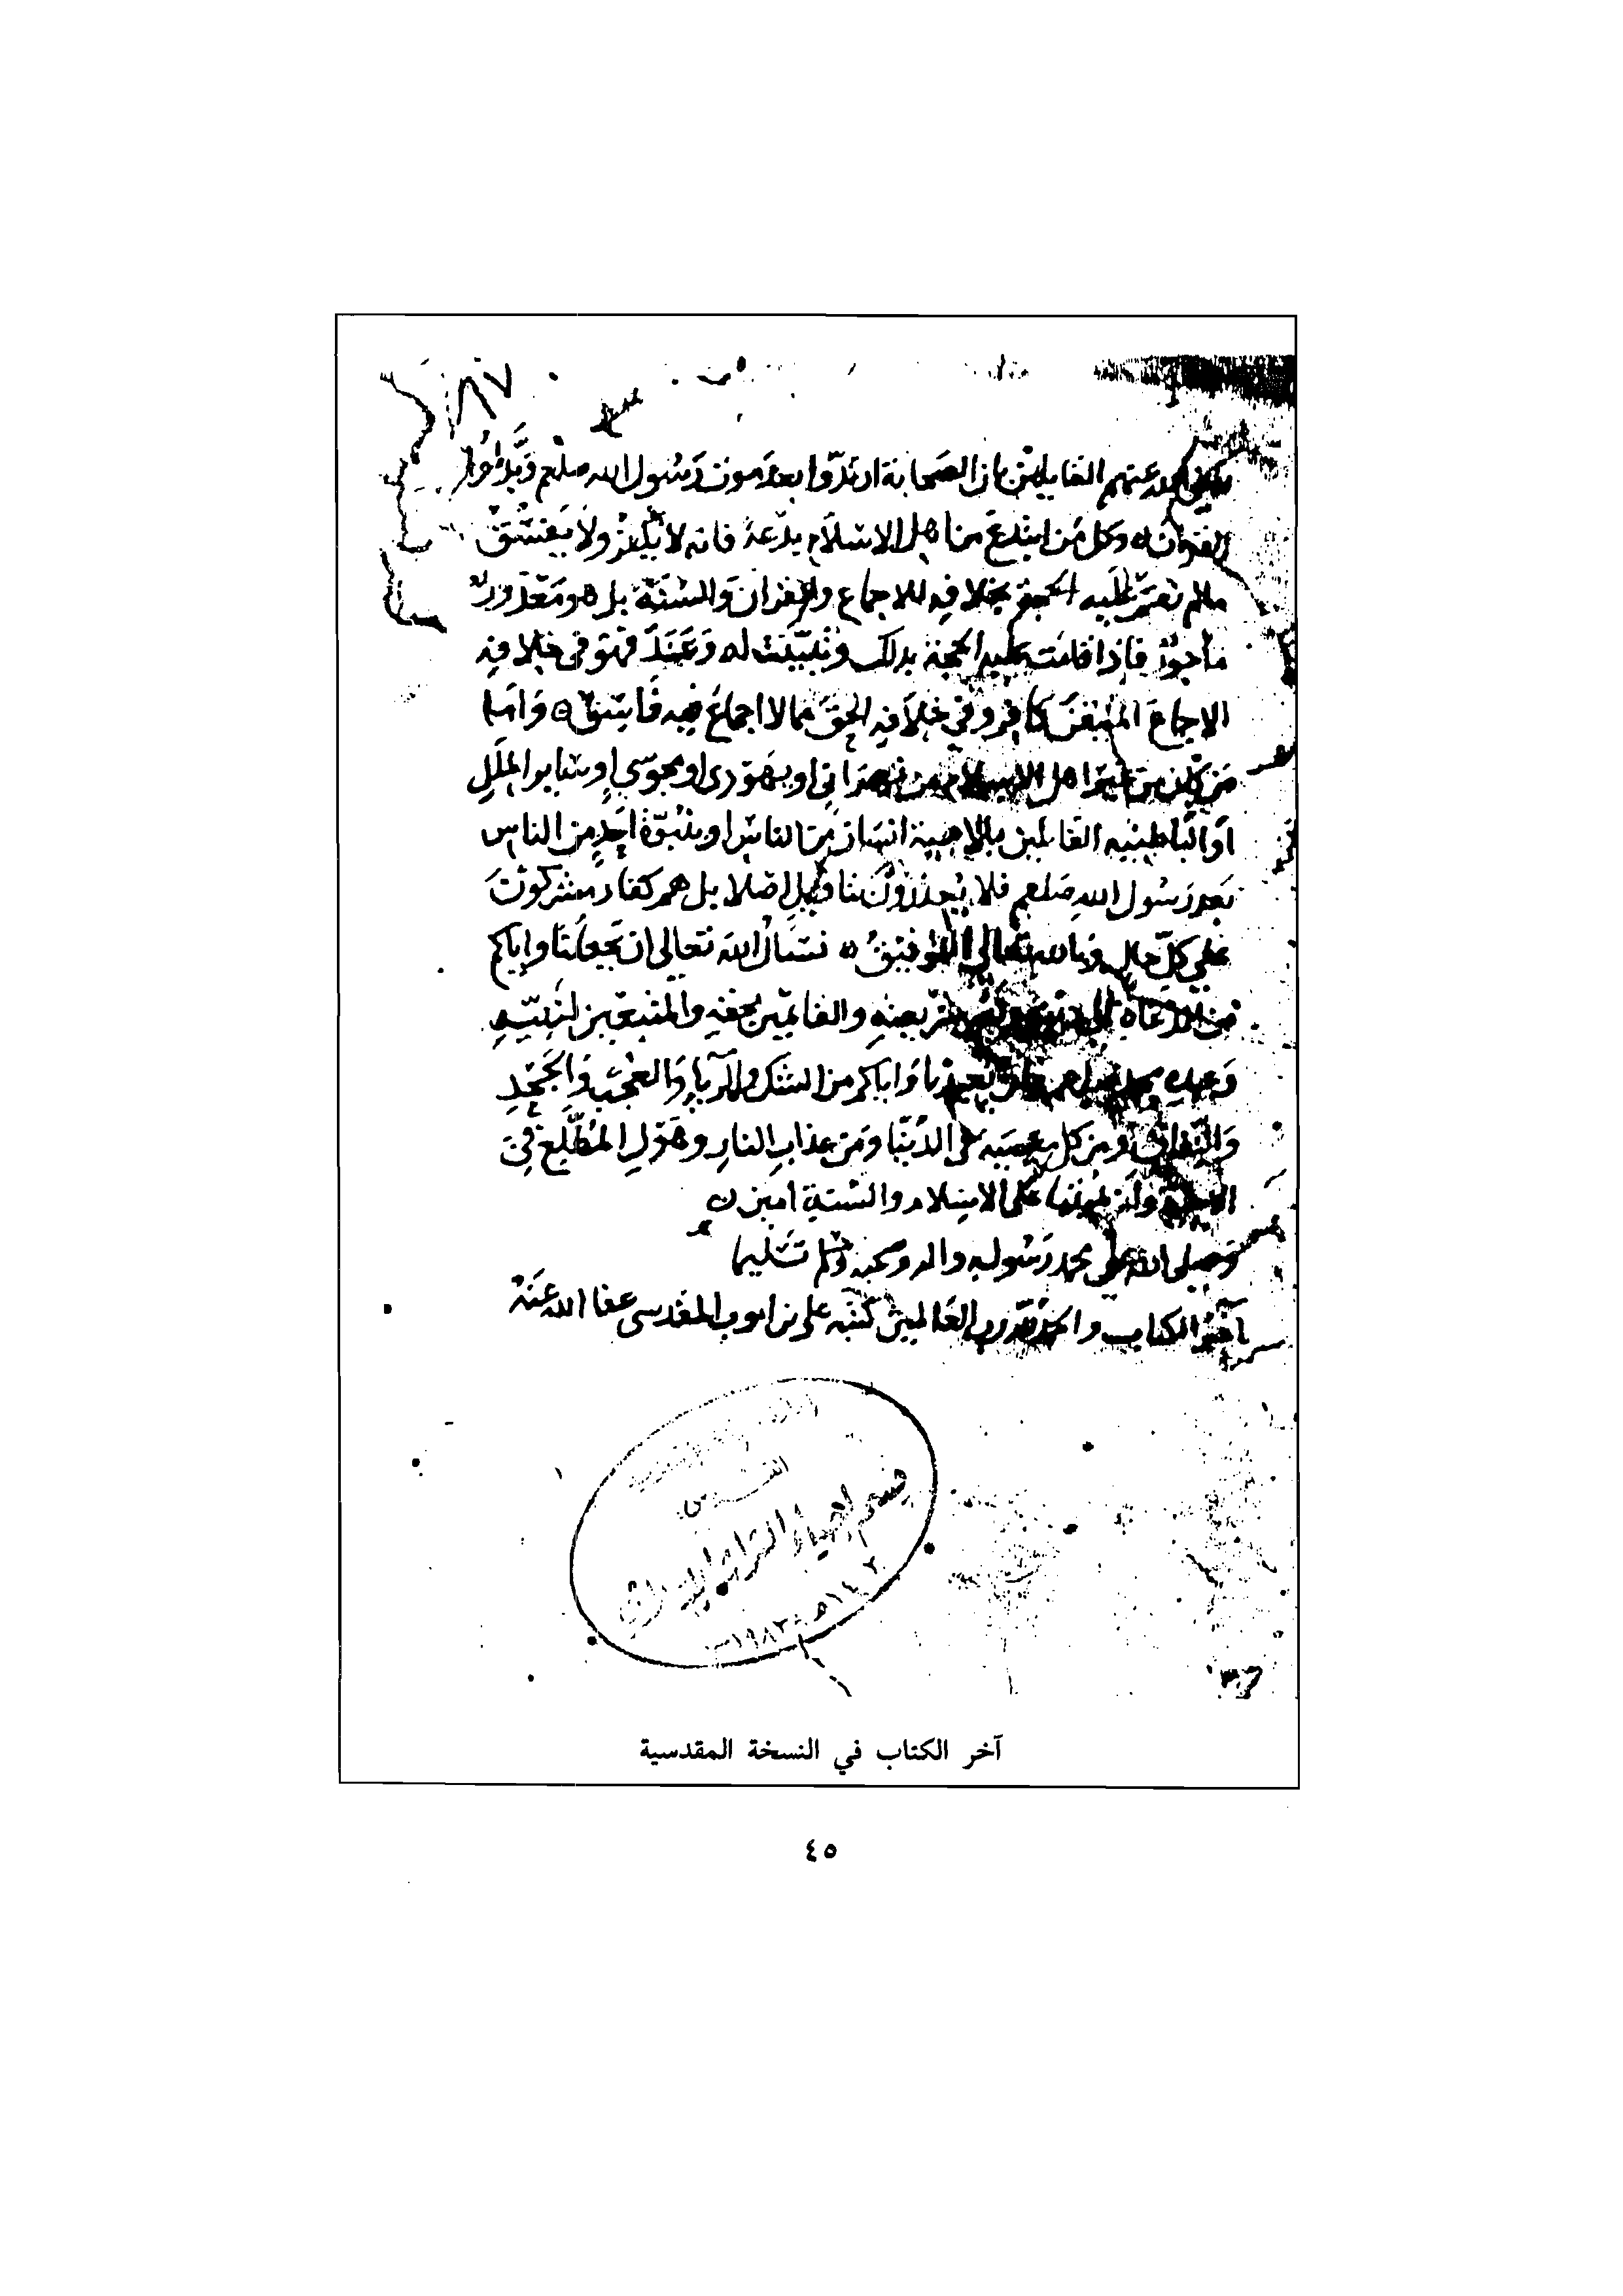 ٨٧
الله عنهم القايلين بان الصحابة ارتدوا بعد موت رسول الله صلعم وبدلوا
القران ه وكل من ابتدع من اهل الاسلام بدعة فانه لا يكفر ولا يفسق
مالم تقم عليه الحجة بخلافه للاجماع والقران والسنة بل هو معذور
ماجور فاذا قامت عليه الحجة بذلك وتبينت له وعند فهو في خلافه
الاجماع المتيقن كافر وفي خلافه الحق مما لا اجماع فيه فاسق ه واما
من كان من غير اهل الاسلام من نصراني او يهودي او مجوسي او ساير الملل
او الباطنيه القايلين بالاهية انسان من الناس او بنبوة احد من الناس
بعد رسول الله صلعم فلا يعذرون بتاويل اصلا بل هم كفار مشركون
على كل حال وبالله تعالى التوفيق ه نسال الله تعالى ان يجعلنا واياكم
من الدعاة الى والقايمين بحقه والمتبعين لنبيه
وعبده وان يعيذنا واياكم من الشك والريا والعجب والجحد
والنفاق ومن كل معصيه في الدنيا ومن عذاب النار وهول المطلع في
على الاسلام والسنة امين ه
وصلى الله على محمد رسوله واله وصحبه وسلم تسليما
آخر الكتاب والحمد لله رب العالمين كتبه علي بن ايوب المقدسي عفا الله عنه
القدس
قسم احياء التراث الاسلامي
١٤٠٢هـ - ١٩٨٢م
آخر الكتاب في النسخة المقدسية
٤٥